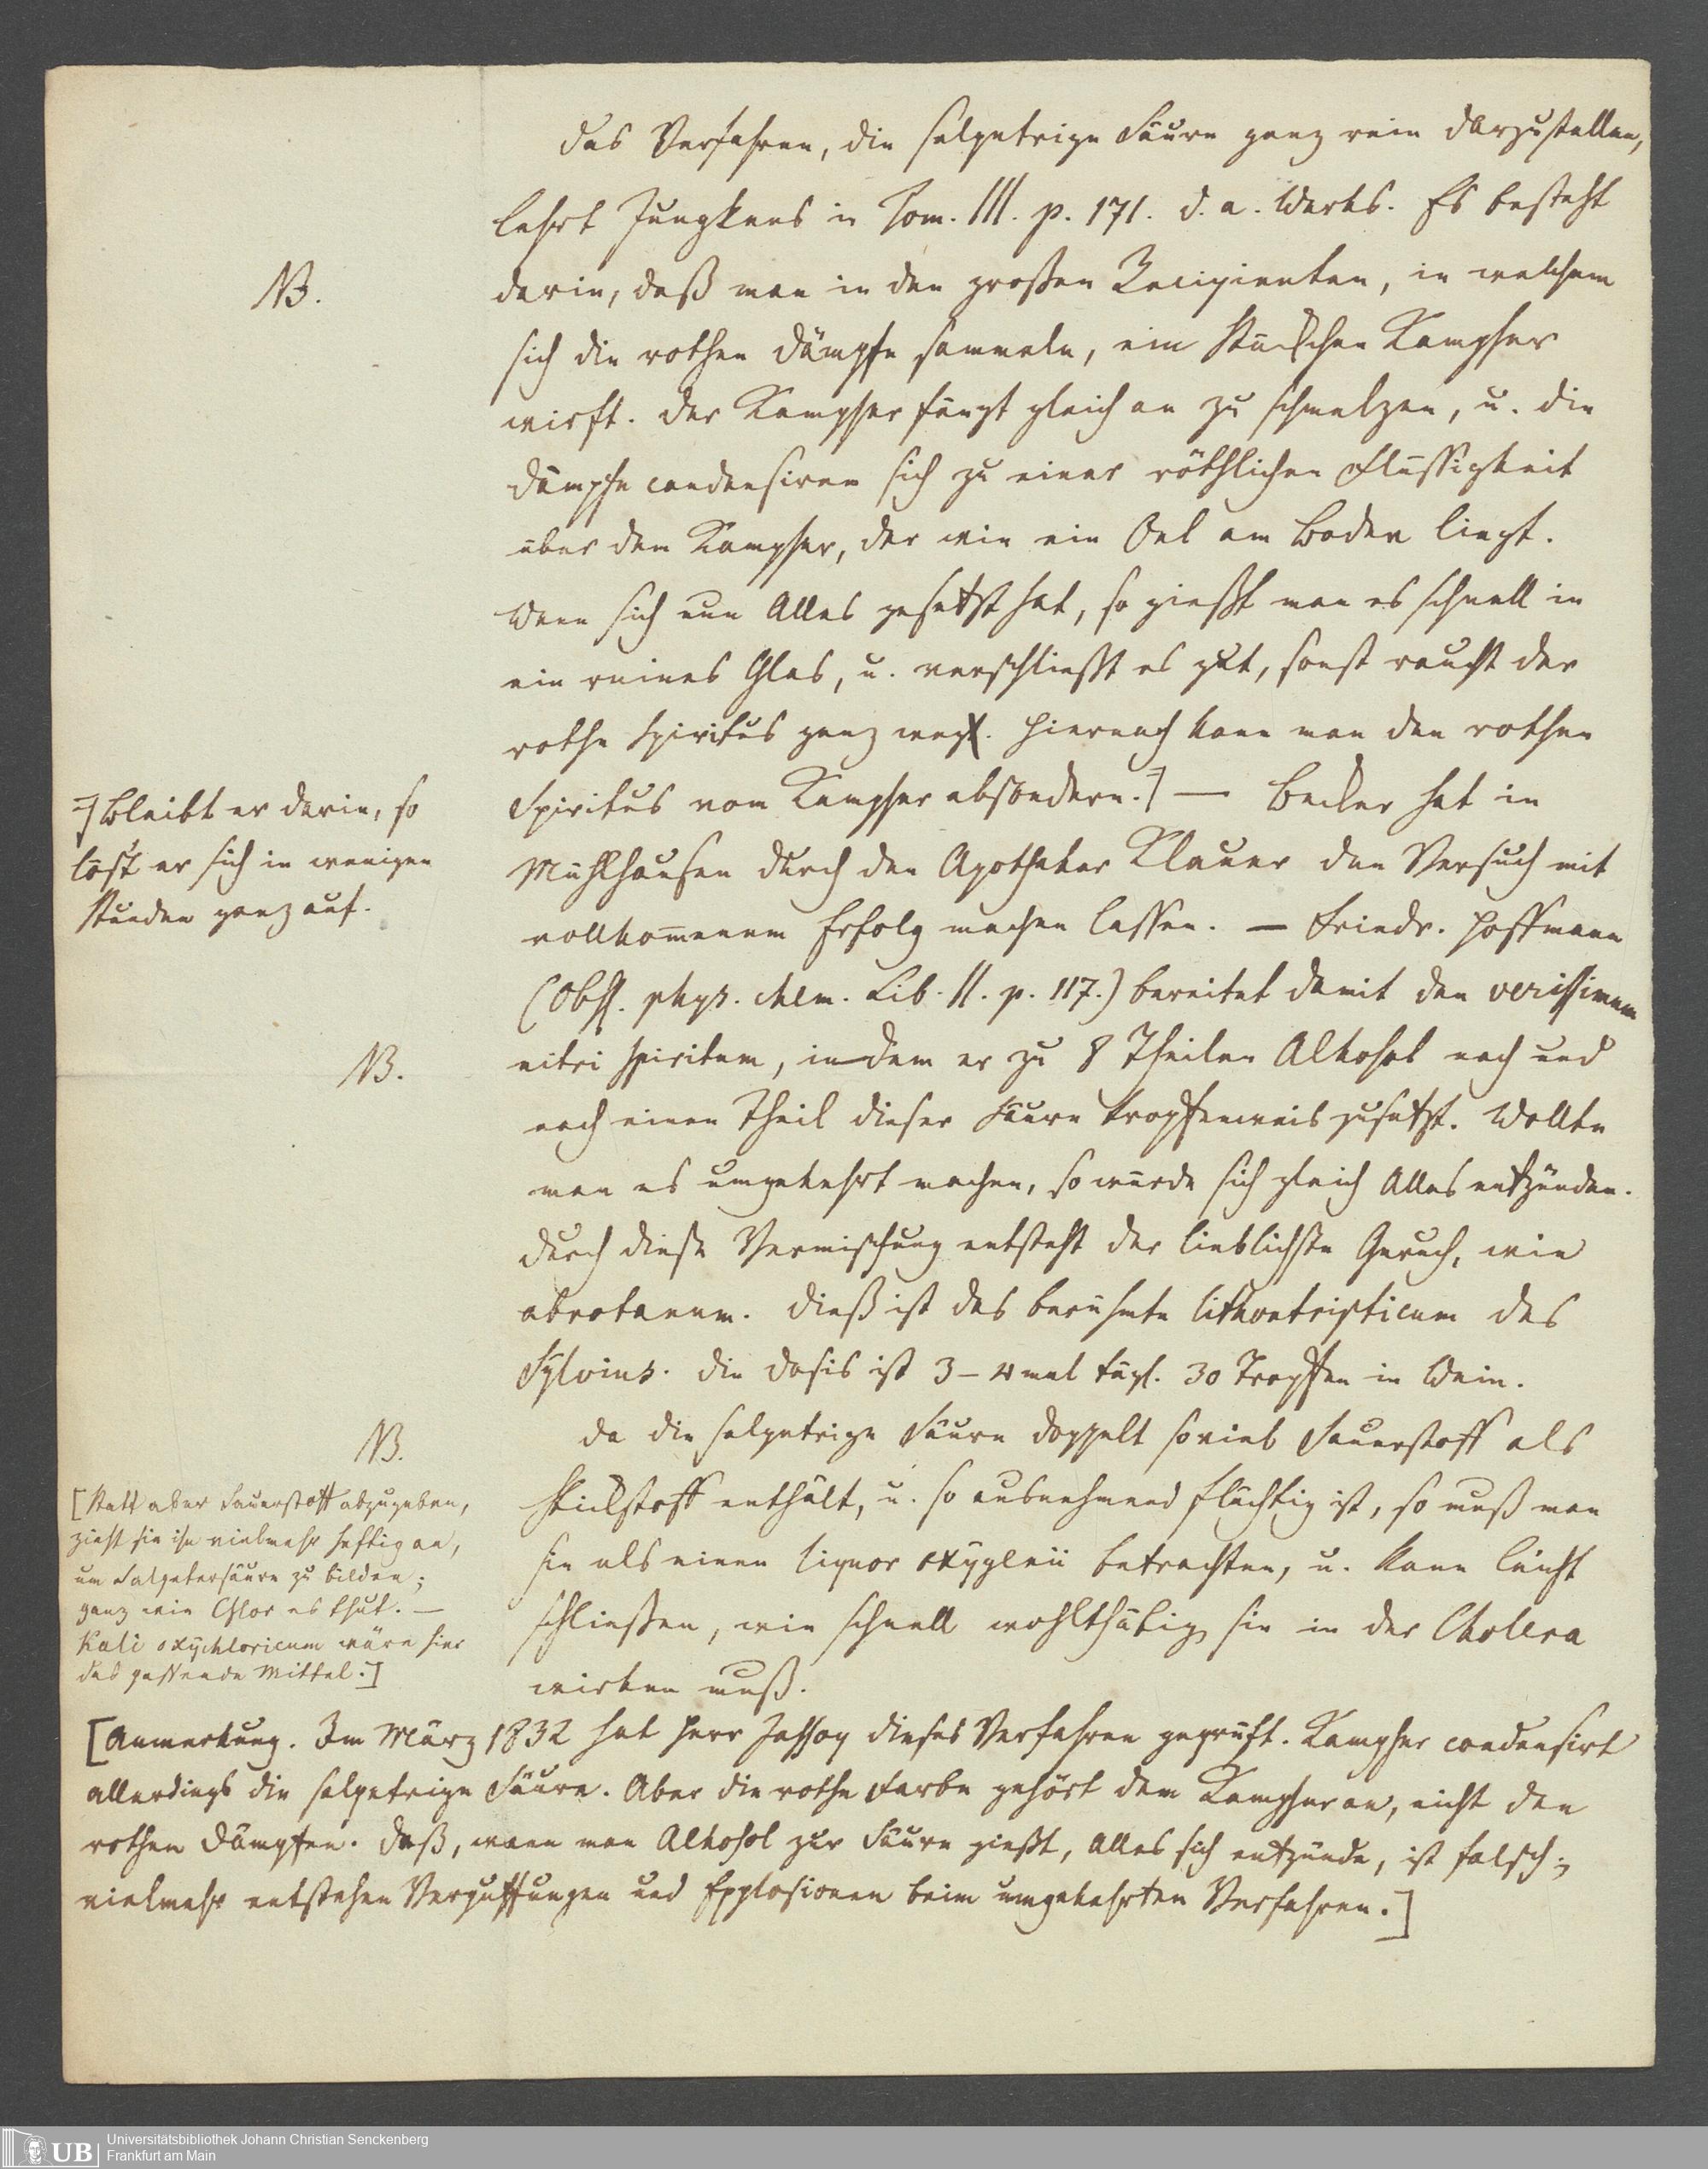 Das Verfahren, die salpetrige Säure ganz rein darzustellen,
lehrt Jungkens in Tom. III. p. 171. d. a. Werks. Es besteht
NB.
darin, daß man in den großen Recipienten, in welchem
sich die rothen Dämpfe sammeln, ein Stückchen Kampher
wirft. Der Kampher fängt gleich an zu schmelzen, u. die
Dämpfe condensiren sich zu einer röthlichen Flüssigkeit
über dem Kampher, der wie ein Oel am Boden liegt.
Wenn sich nun Alles gesetzt hat, so gießt man es schnell in
ein reines Glas, u. verschließt es gut, sonst raucht der
rothe Spiritus ganz weg. Hiernach kann man den rothen
Spiritus vom Kampher absondern. — Becker hat in
Mühlhausen durch den Apotheker Klauer den Versuch mit
vollkommenem Erfolg machen lassen. — Friedr. Hoffmann
(Obss. phys. chem. Lib. II. p. 117.) bereitet damit den verissimum
nitri spiritum, indem er zu 8 Theilen Alkohol nach und
nach einen Theil dieser Säure tropfenweis zusetzt. Wollte
man es umgekehrt machen, so würde sich gleich Alles entzünden.
Durch diese Vermischung entsteht der lieblichste Geruch, wie
abrotanum. Dieß ist das berühmte lithontripticum des
Sylvius. Die Dosis ist 3–4 mal tägl. 30 Tropfen in Wein.
Da die salpetrige Säure doppelt soviel Sauerstoff als
Stickstoff enthält, u. so ausnehmend flüchtig ist, so muß man
sie als einen liquor oxygenii betrachten, u. kann leicht
schließen, wie schnell wohlthätig sie in der Cholera
wirken muß.
Bleibt er darin, so
löst er sich in wenigen
Stunden ganz auf.
NB.
NB.
[Statt aber Sauerstoff abzugeben,
zieht sie ihn vielmehr heftig an,
um Salpetersäure zu bilden;
ganz wie Chlor es thut. —
Kali oxychloricum wäre hier
das passende Mittel.]
[Anmerkung. Im März 1832 hat Herr Jassoy dieses Verfahren geprüft. Kampher condensirt
allerdings die salpetrige Säure. Aber die rothe Farbe gehört dem Kampher an, nicht den
rothen Dämpfen. Daß, wenn man Alkohol zur Säure gießt, Alles sich entzünde, ist falsch;
vielmehr entstehen Verpuffungen und Explosionen beim umgekehrten Verfahren.]
UB
Universitätsbibliothek Johann Christian Senckenberg
Frankfurt am Main